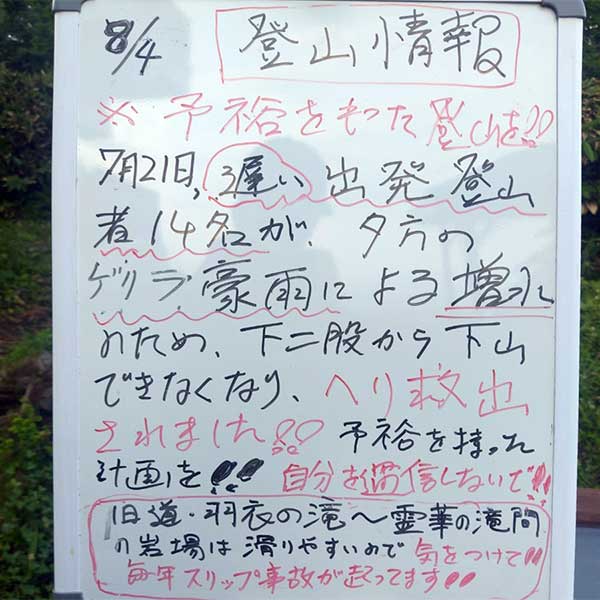 8/4 登山情報
※予裕をもった登山を!!
7月21日,遅い出発登山
者14名が、夕方の
ゲリラ豪雨による増水
のため、下二股から下山
できなくなり、ヘリ救出
されました!! 予裕を持った
計画を!! 自分を過信しないで!!
旧道・羽衣の滝〜霊華の滝間
の岩場は滑りやすいので気をつけて!!
毎年スリップ事故が起ってます!!